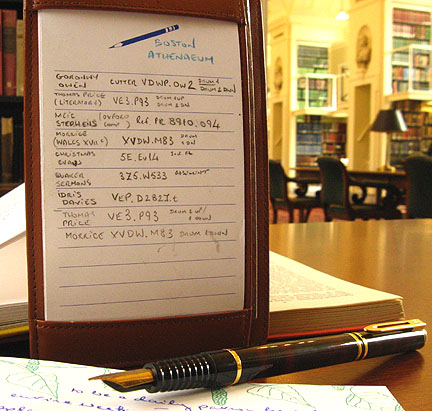 BOSTON
ATHENAEUM
GORONWY OWEN CUTTER VDWP.OW2 DRUM 1 DRUM 2 DWN
THOMAS PRICE (LITERATURE) VE3.P93 DRUM 1 UP DRUM 2 DWN
MEIC STEPHENS (OXFORD COMP) Ref PR 8910.094
MORRICE (WALES XVII C) XVDW.M83 DRUM 1 DN
CHRISTMAS EVANS 5E.EV14 3rd FL
QUAKER SERMONS 375.W533
IDRIS DAVIES VEP.D282I.t
THOMAS PRICE VE3.P93 DRUM 2 UP/ 1 DOWN
MORRICE XVDW.M83 DRUM DOWN
to be a daily
entire week